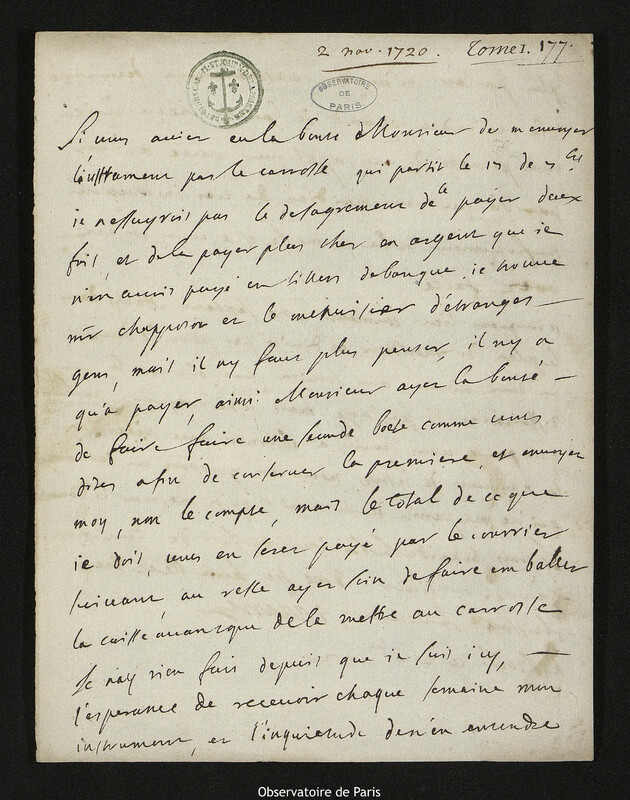 2 nov. 1720. Tome I. 177.
OBSERVATOIRE
DE
PARIS
Si vous aviez eu la bonté Monsieur de m envoyer
l'instrument par le carrosse qui partit le 17 de 7bre
ie n essuyrois pas le desagrement de le payer deux
fois, et de le payer plus cher en argent que ie
n'en aurois payé en billets de banque, ie trouve
mr chapposon et le menuisier d'etranges
gens, mais il ny faut plus penser, il ny a
qu'a payer, ainsi Monsieur ayez la bonté
de faire faire une seconde boete comme vous
dites afin de conserver la premiere, et envoyez
moy, non le compte, mais le total de ce que
ie dois, vous en serez payé par le courrier
suivant, au reste ayez soin de faire emballer
la caisse avant que de le mettre au carrosse
Je n'ay rien fait depuis que ie suis icy,
l'esperance de recevoir chaque semaine mon
instrument, et l'inquietude de n'en entendre
Observatoire de Paris